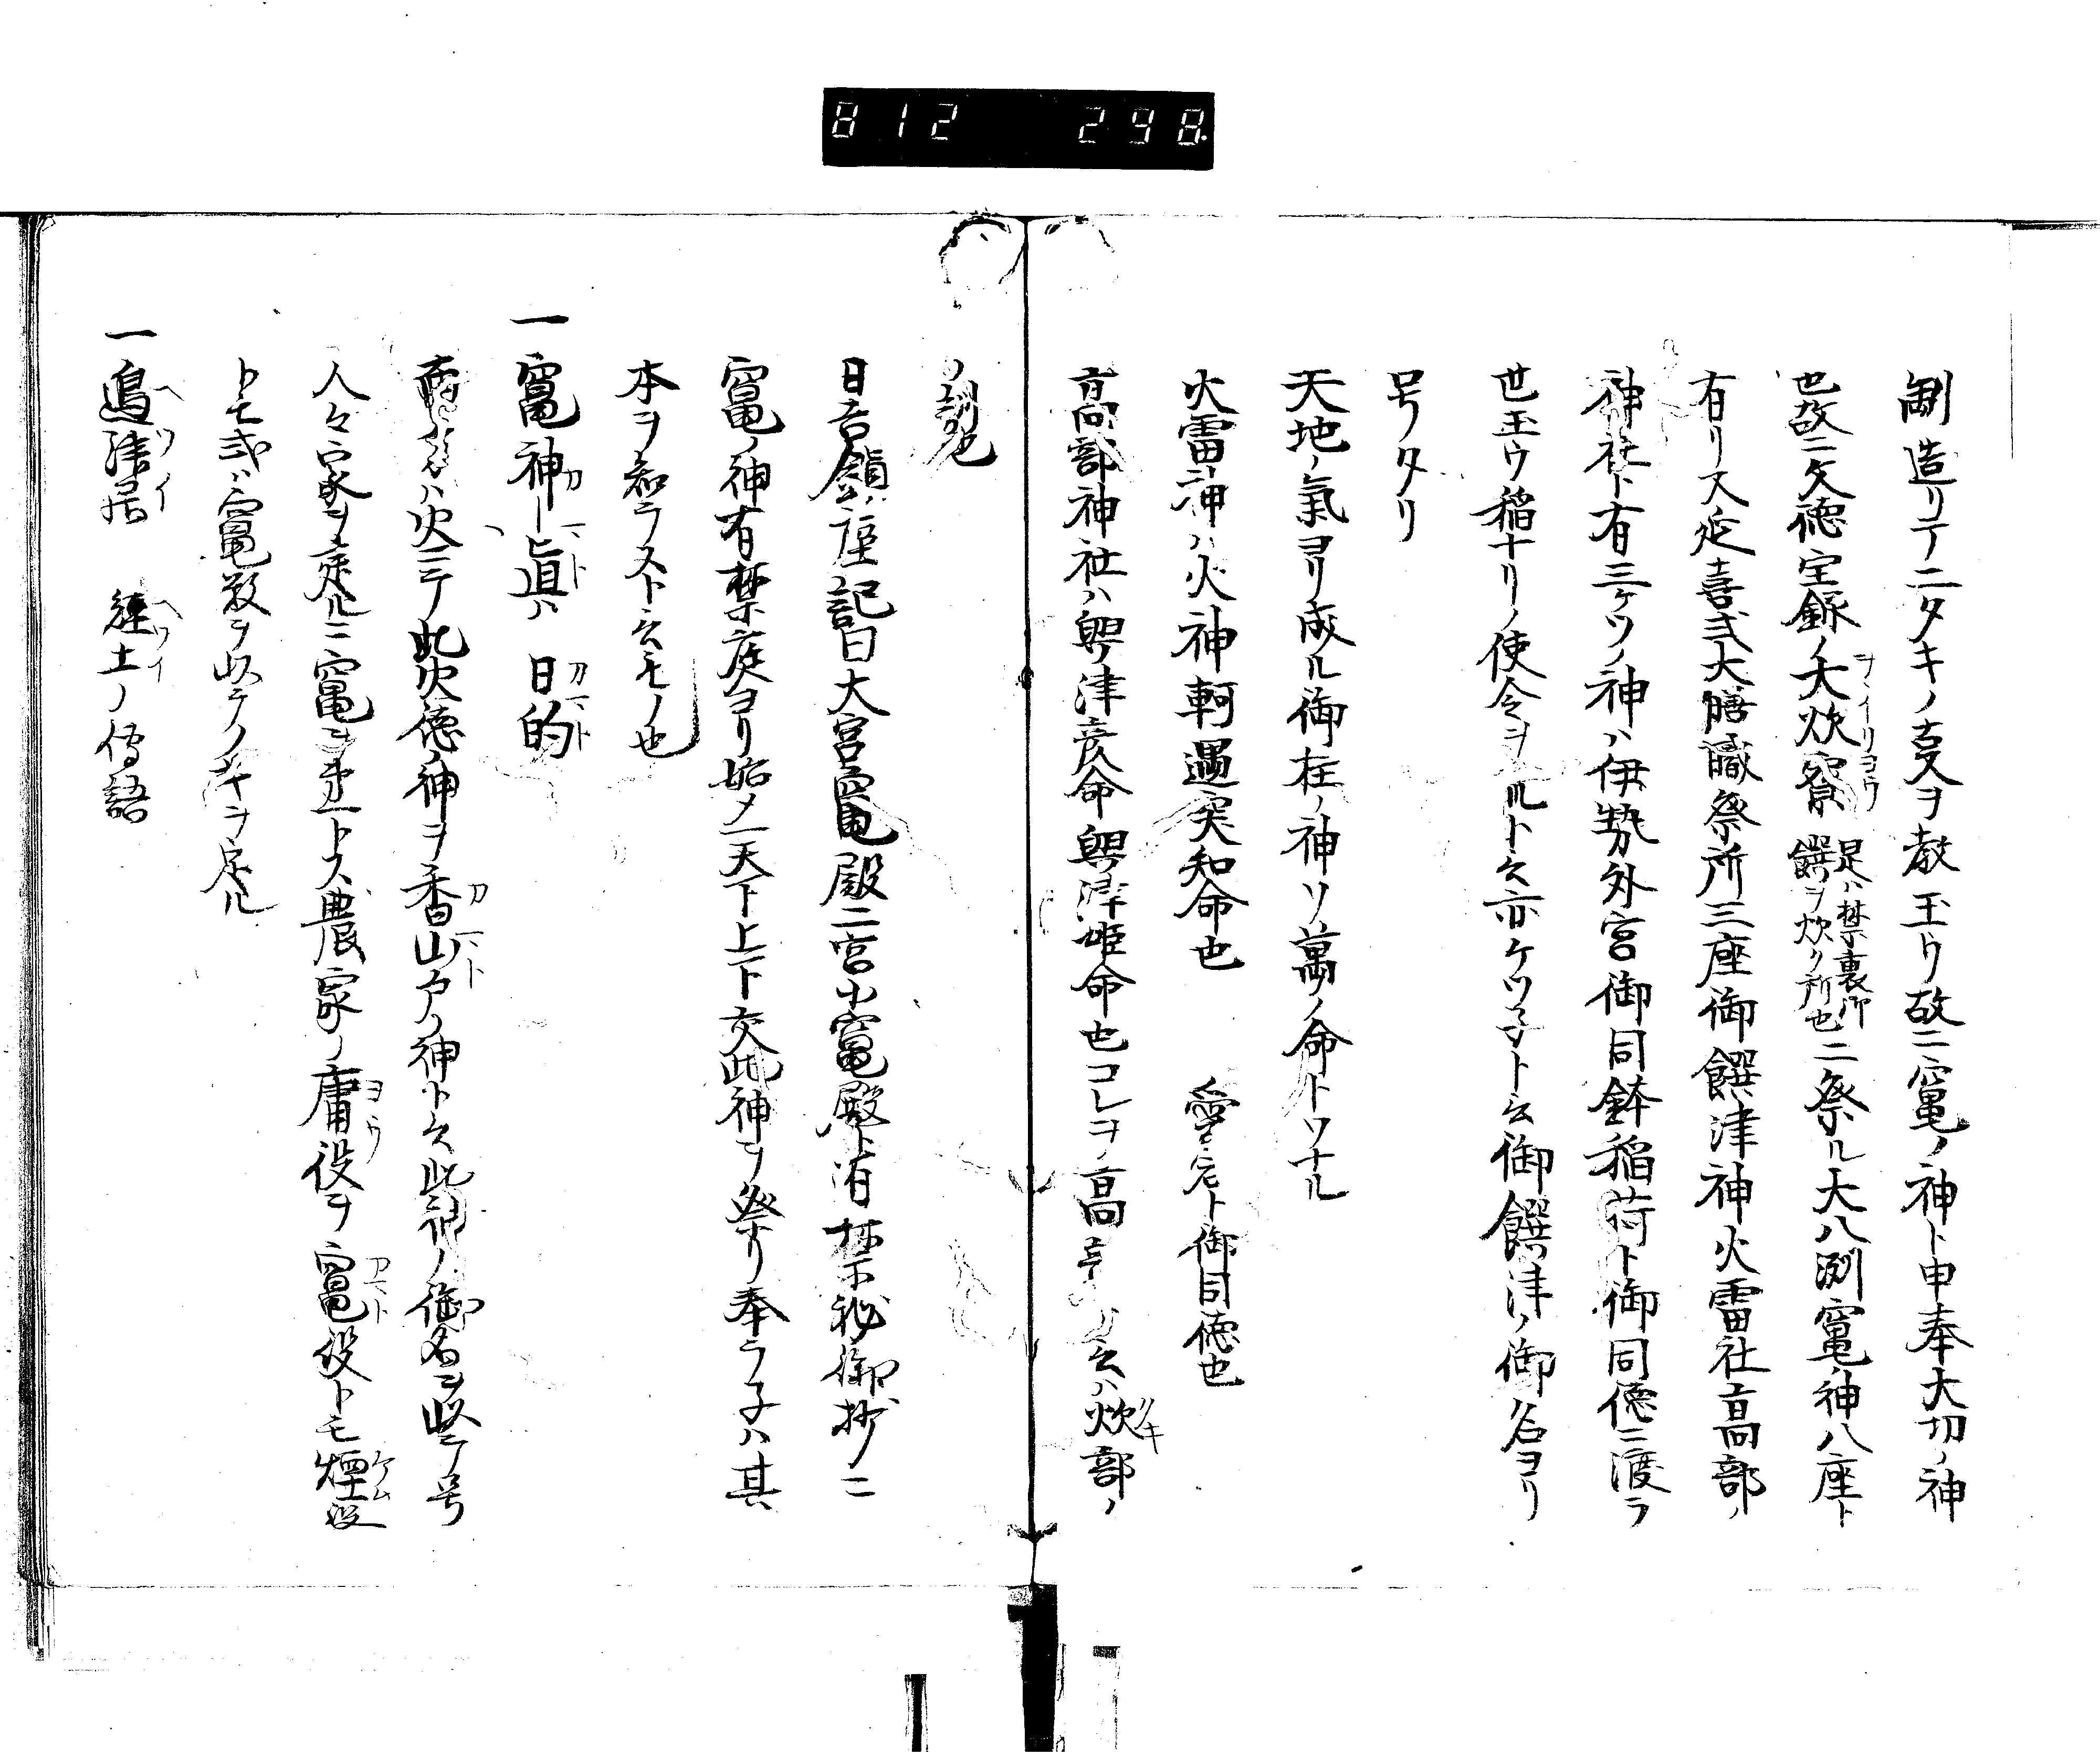 812 298.
制造リテニタキノ支ヲ教玉リ故ニ竃ノ神ト申奉大切ノ神
也故ニ文徳宝録ノ大炊寮ヲヽイリヨウ 是ハ禁裏御饌ヲ炊ク所也ニ祭ル大八洲竃ノ神八座ト
有リ又延喜式大膳職祭所三座御饌津神火雷社高部ノ
神社ト有三ケツノ神ハ伊勢外宮御同鉢稲荷ト御同徳ニ渡ラ
世玉ウ稲ナリノ使令ヲルト云亦ケツ子ト云御饌津ノ御名ヨリ
号リタリ
天地ノ氣ヨリ成ル御柱ノ神リ萬ノ命トソナル
火雷神ハ火神軻遇突知命也 愛宕ト御同徳也
高部神社ハ興津彦命興津姫命也コレヲ高 云ハ炊部ノ
ノ訓也
日吉鎮座記曰大宮竃殿二宮小竃殿ト有禁秘御抄ニ
竃ノ神有禁庭ヨリ始メ一天下上下交此神ヲ祭リ奉ラ子ハ其
本ヲ知ラスト云モノ也
一竃神カマト眞ハ 日的カマト
ハ火ニテ此火徳ノ神ヲ香山戸ノ神ト云此神ノ御名ヲ号
人々家ヲ定ルニ竃ヲ第一トス農家ノ庸役ヲ竃役トモ煙役
トモ或ハ竃数ヲ以テノヲ定ル
一津居ヘツイ 土ノ傳語